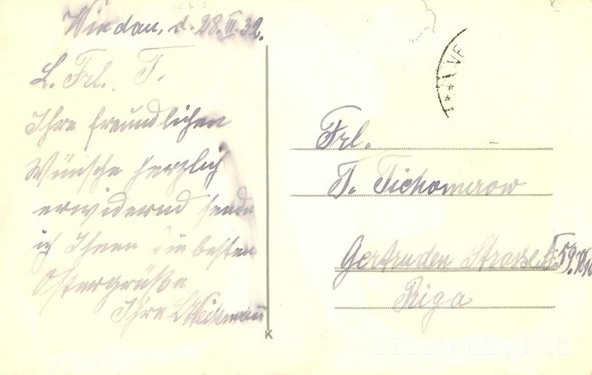 Windau, d. 28.III.32.
L. Frl. T.
Ihre freundlichen
Wünsche herzlich
erwidernd sende
ich Ihnen die besten
Ostergrüße
Ihre
Frl.
T. Tichomirow
Gertruden Strasse 59
Riga
K